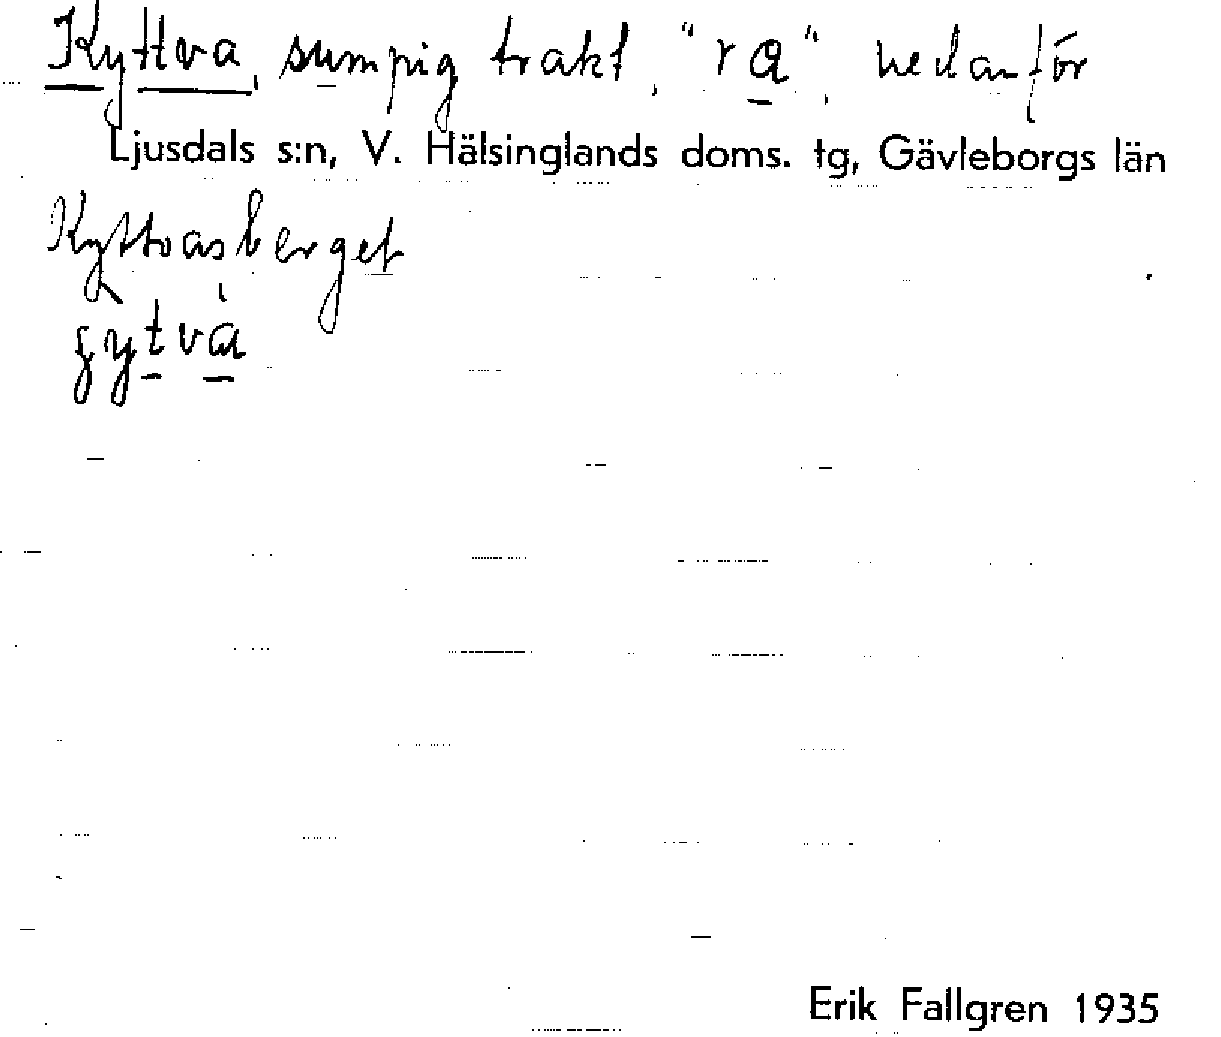 Kyttva, sumpig trakt, "ra", nedanför
Ljusdals s:n, V. Hälsinglands doms. tg, Gävleborgs län
Kyttvasberget
Erik Fallgren 1935